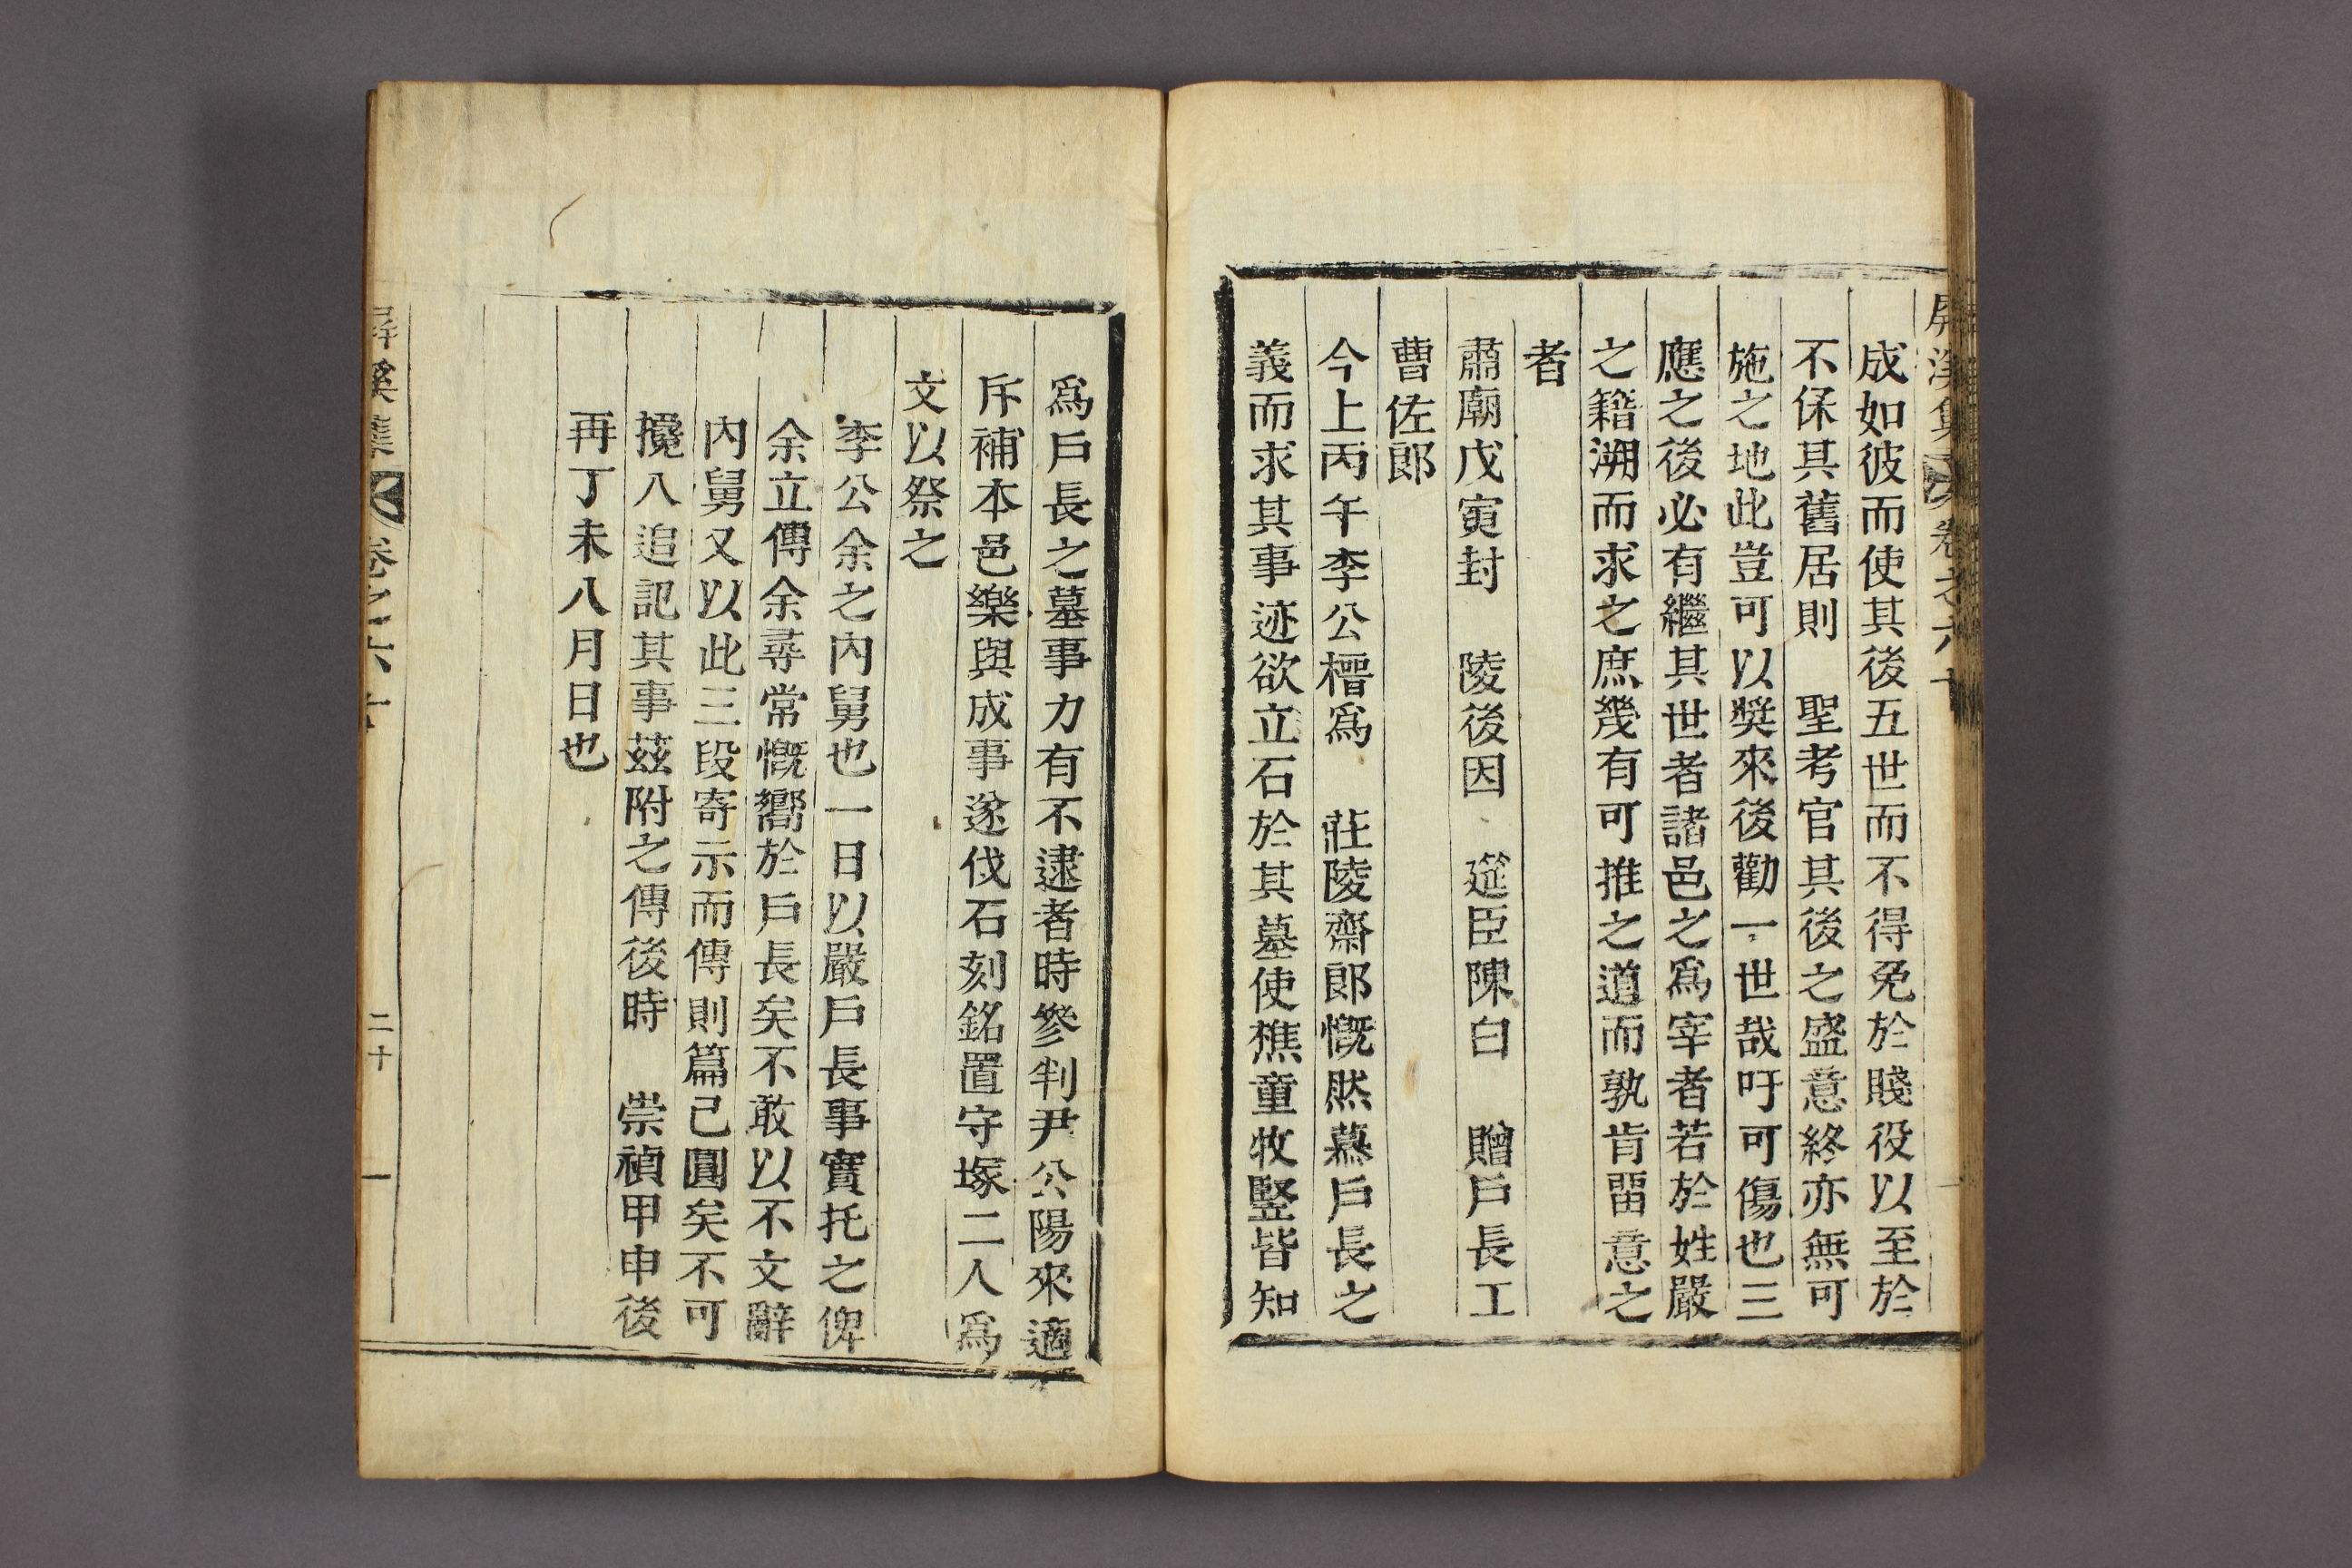 屛溪集 卷之六十
成如彼而使其後五世而不得免於賤役以至於
不保其舊居則 聖考官其後之盛意終亦無可
施之地此豈可以奬來後勸一世哉吁可傷也三
應之後必有繼其世者諸邑之爲宰者若於姓嚴
之籍溯而求之庶幾有可推之道而孰肯留意之
者
肅廟戊寅封 陵後因 筵臣陳白 贈戶長工
曹佐郎
今上丙午李公橝爲 莊陵齋郎慨然慕戶長之
義而求其事迹欲立石於其墓使樵童牧竪皆知
爲戶長之墓事力有不逮者時參判尹公陽來適
斥補本邑樂與成事遂伐石刻銘置守塚二人爲
文以祭之
李公余之內舅也一日以嚴戶長事實托之俾
余立傳余尋常慨嚮於戶長矣不敢以不文辭
內舅又以此三段寄示而傳則篇已圓矣不可
攙入追記其事玆附之傳後時 崇禎甲申後
再丁未八月日也
屛溪集 卷之六十 二十一